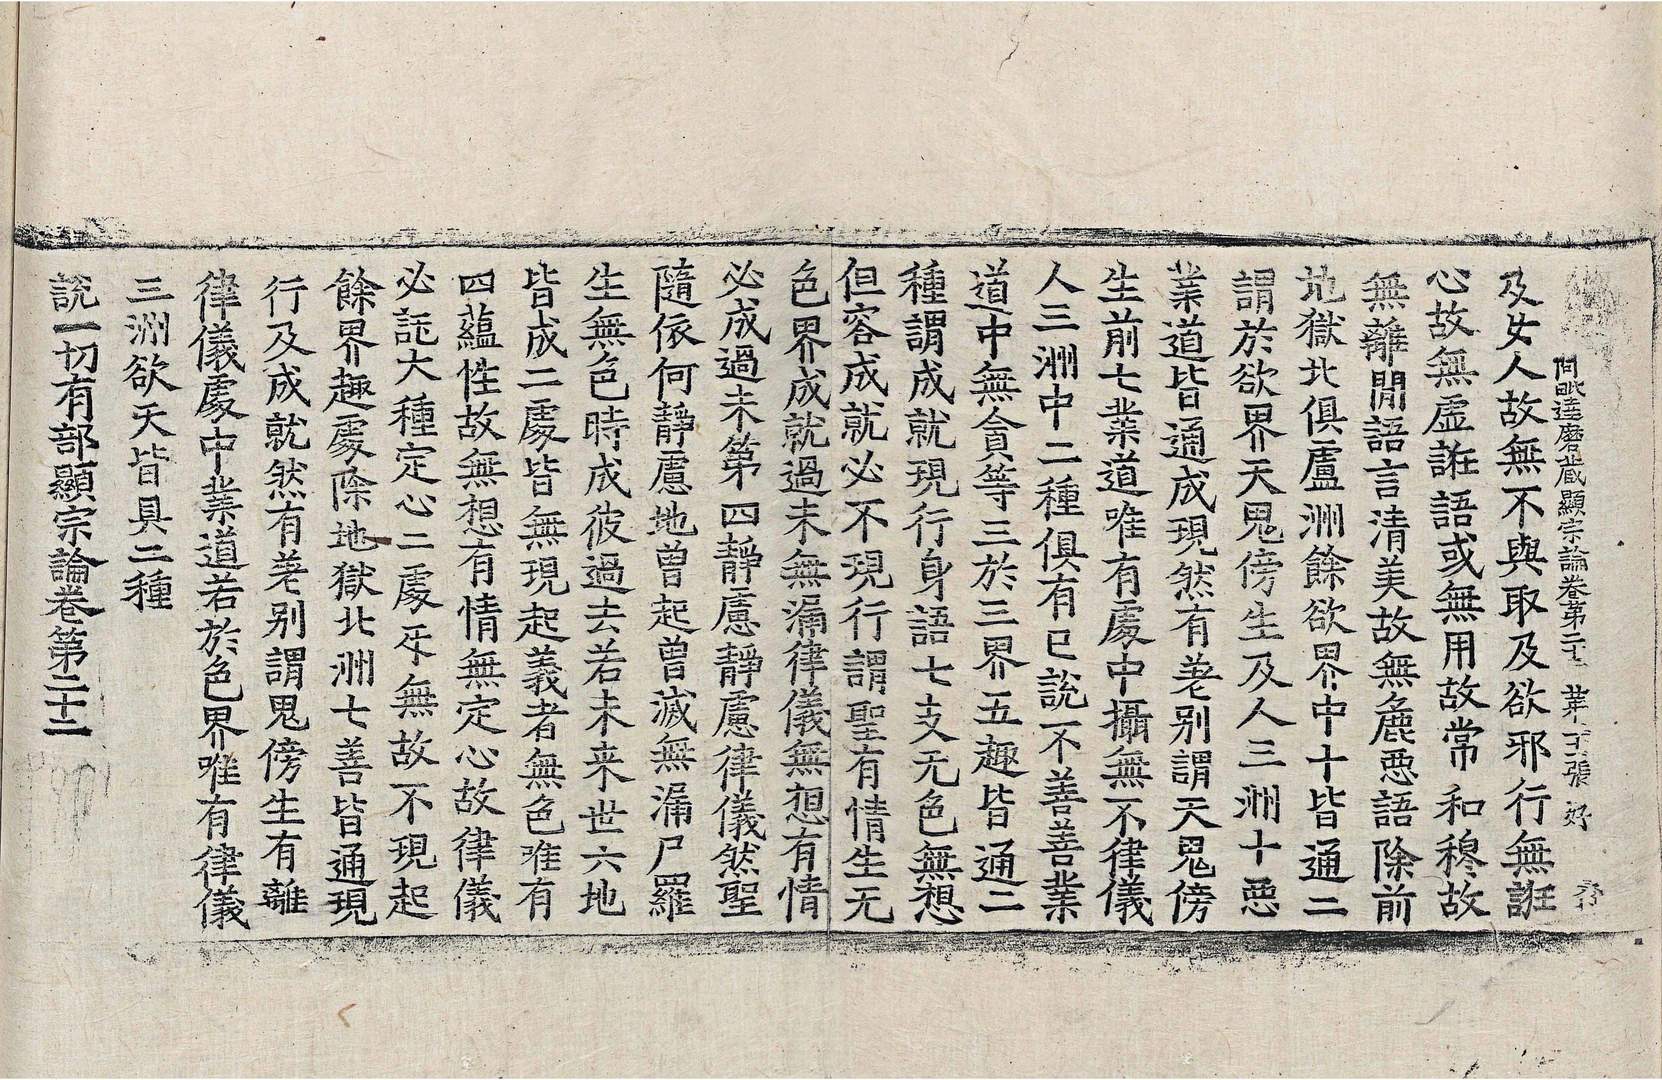 阿毗達磨藏顯宗論卷第二十二 業 張 好
及女人故無不與取及欲邪行無誑
心故無虛誑語或無用故常和穆故
無離間語言清美故無麁惡語除前
地獄北俱盧洲餘欲界中十皆通二
謂於欲界天鬼傍生及人三洲十惡
業道皆通成現然有差別謂天鬼傍
生前七業道唯有處中攝無不律儀
人三洲中二種俱有已說不善善業
道中無貪等三於三界五趣皆通二
種謂成就現行身語七支无色無想
但容成就必不現行謂聖有情生无
色界成就過未無漏律儀無想有情
必成過未第四靜慮靜慮律儀然聖
隨依何靜慮地曾起曾滅無漏尸羅
生無色時成彼過去若未来世六地
皆成二處皆無現起義者無色唯有
四蘊性故無想有情無定心故律儀
必託大種定心二處互無故不現起
餘界趣處除地獄北洲七善皆通現
行及成就然有差别謂鬼傍生有離
律儀處中業道若於色界唯有律儀
三洲欲天皆具二種
說一切有部顯宗論卷第二十二